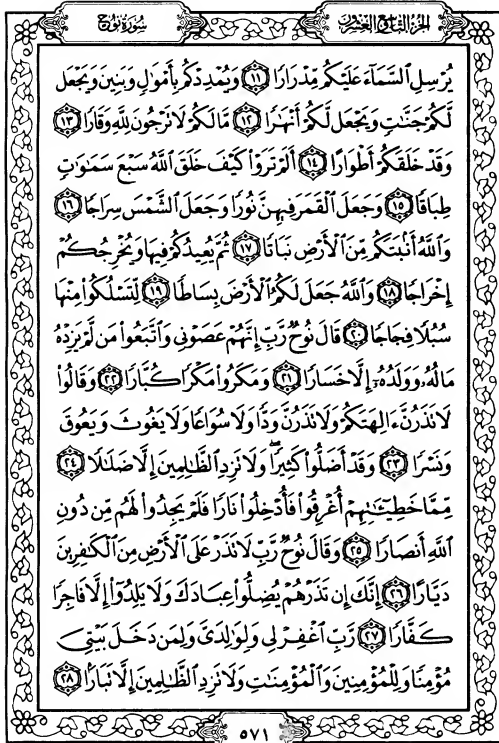 سُورَةُ نُوحٍ
الجُزءُ التَّاسِعُ وَالعِشْرُونَ
يُرْسِلِ ٱلسَّمَآءَ عَلَيْكُم مِّدْرَارًا ١١ وَيُمْدِدْكُم بِأَمْوَٰلٍ وَبَنِينَ وَيَجْعَل
لَّكُمْ جَنَّٰتٍ وَيَجْعَل لَّكُمْ أَنْهَٰرًا ١٢ مَّا لَكُمْ لَا تَرْجُونَ لِلَّهِ وَقَارًا ١٣
وَقَدْ خَلَقَكُمْ أَطْوَارًا ١٤ أَلَمْ تَرَوْا۟ كَيْفَ خَلَقَ ٱللَّهُ سَبْعَ سَمَٰوَٰتٍ
طِبَاقًا ١٥ وَجَعَلَ ٱلْقَمَرَ فِيهِنَّ نُورًا وَجَعَلَ ٱلشَّمْسَ سِرَاجًا ١٦
وَٱللَّهُ أَنۢبَتَكُم مِّنَ ٱلْأَرْضِ نَبَاتًا ١٧ ثُمَّ يُعِيدُكُمْ فِيهَا وَيُخْرِجُكُمْ
إِخْرَاجًا ١٨ وَٱللَّهُ جَعَلَ لَكُمُ ٱلْأَرْضَ بِسَاطًا ١٩ لِّتَسْلُكُوا۟ مِنْهَا
سُبُلًا فِجَاجًا ٢٠ قَالَ نُوحٌ رَّبِّ إِنَّهُمْ عَصَوْنِى وَٱتَّبَعُوا۟ مَن لَّمْ يَزِدْهُ
مَالُهُۥ وَوَلَدُهُۥٓ إِلَّا خَسَارًا ٢١ وَمَكَرُوا۟ مَكْرًا كُبَّارًا ٢٢ وَقَالُوا۟
لَا تَذَرُنَّ ءَالِهَتَكُمْ وَلَا تَذَرُنَّ وَدًّا وَلَا سُوَاعًا وَلَا يَغُوثَ وَيَعُوقَ
وَنَسْرًا ٢٣ وَقَدْ أَضَلُّوا۟ كَثِيرًا ۖ وَلَا تَزِدِ ٱلظَّٰلِمِينَ إِلَّا ضَلَٰلًا ٢٤
مِّمَّا خَطِيٓـَٰٔتِهِمْ أُغْرِقُوا۟ فَأُدْخِلُوا۟ نَارًا فَلَمْ يَجِدُوا۟ لَهُم مِّن دُونِ
ٱللَّهِ أَنصَارًا ٢٥ وَقَالَ نُوحٌ رَّبِّ لَا تَذَرْ عَلَى ٱلْأَرْضِ مِنَ ٱلْكَٰفِرِينَ
دَيَّارًا ٢٦ إِنَّكَ إِن تَذَرْهُمْ يُضِلُّوا۟ عِبَادَكَ وَلَا يَلِدُوٓا۟ إِلَّا فَاجِرًا
كَفَّارًا ٢٧ رَّبِّ ٱغْفِرْ لِى وَلِوَٰلِدَىَّ وَلِمَن دَخَلَ بَيْتِىَ
مُؤْمِنًا وَلِلْمُؤْمِنِينَ وَٱلْمُؤْمِنَٰتِ وَلَا تَزِدِ ٱلظَّٰلِمِينَ إِلَّا تَبَارًۢا ٢٨
٥٧١